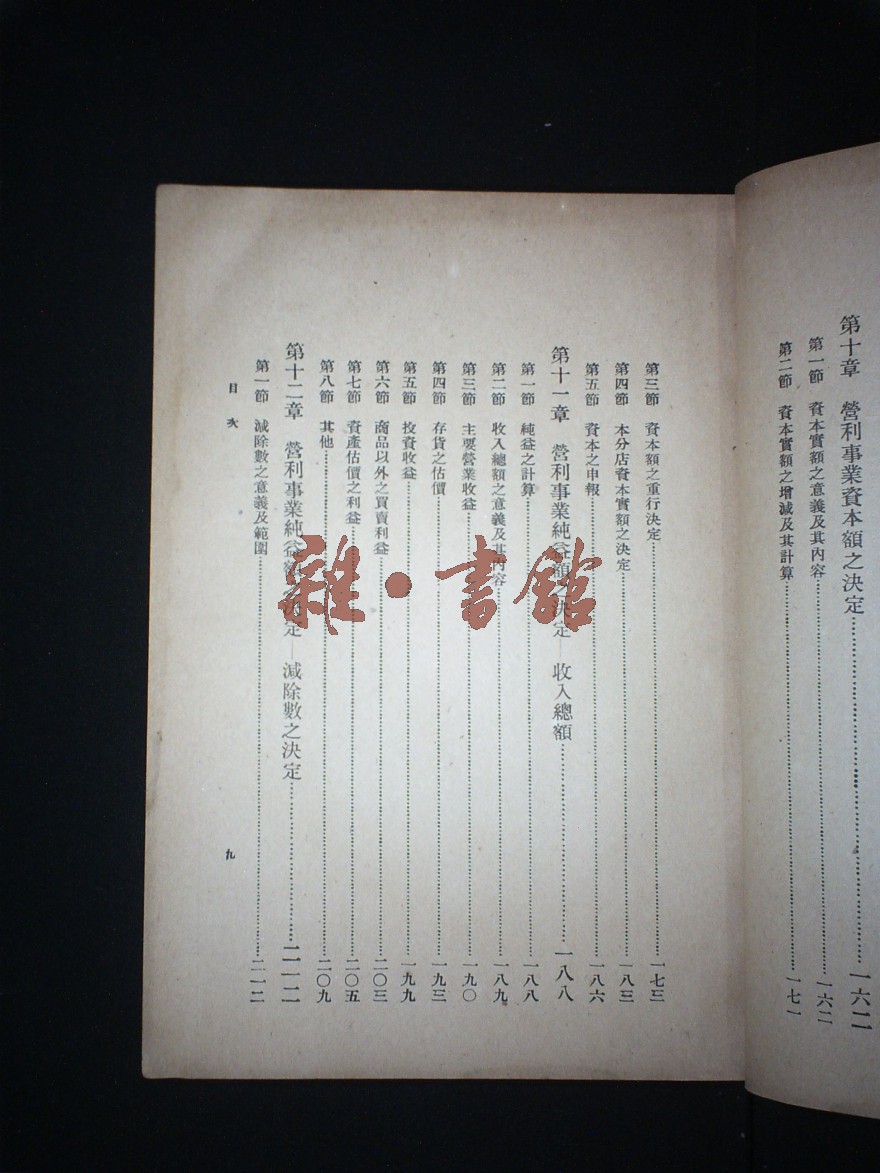 第十章　營利事業資本額之決定……一六二
第一節　資本實額之意義及其內容……一六二
第二節　資本實額之增減及其計算……一七一
第三節　資本額之重行決定……一七三
第四節　本分店資本實額之決定……一八三
第五節　資本之申報……一八六
第十一章　營利事業純益額之決定—收入總額……一八八
第一節　純益之計算……一八八
第二節　收入總額之意義及其內容……一八九
第三節　主要營業收益……一九〇
第四節　存貨之估價……一九三
第五節　投資收益……一九九
第六節　商品以外之買賣利益……二〇三
第七節　資產估價之利益……二〇五
第八節　其他……二〇九
第十二章　營利事業純益額之決定—減除數之決定……二一二
第一節　減除數之意義及範圍……二一二
目次
九
雜·書館